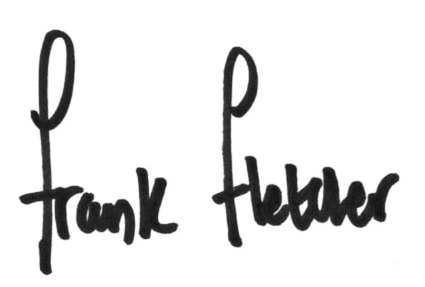 Frank Fletcher